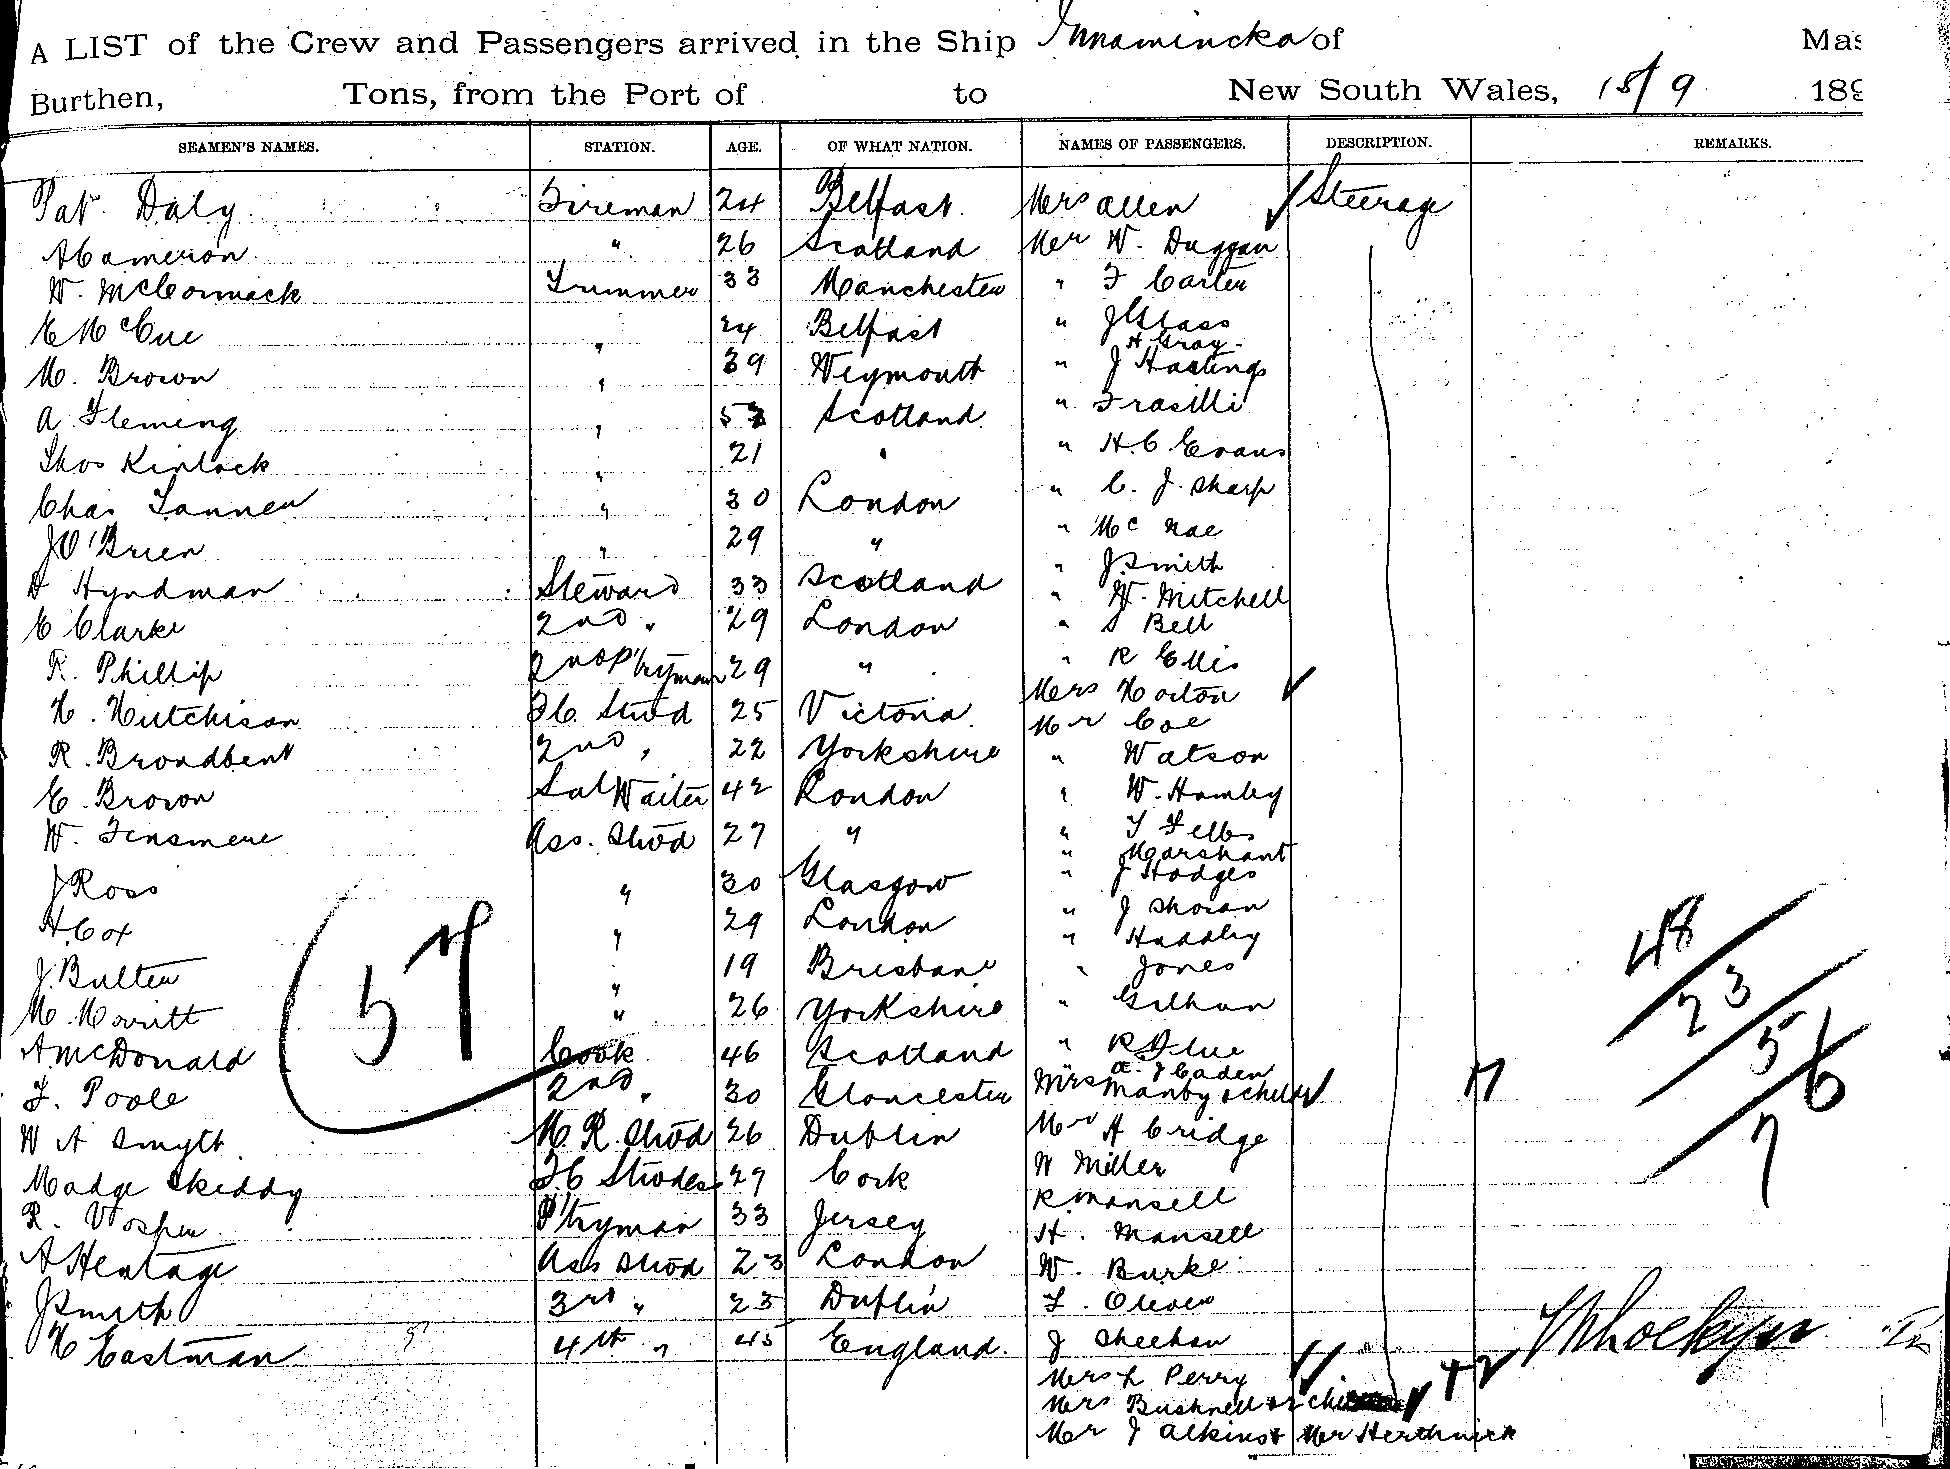 A LIST of the Crew and Passengers arrived in the Ship Innamincka of Mas
Burthen, Tons, from the Port of to New South Wales, 18/9 189
SEAMEN'S NAMES. STATION. AGE. OF WHAT NATION. NAMES OF PASSENGERS. DESCRIPTION. REMARKS.
Pat Daly Fireman 24 Belfast Mrs Allen Steerage
A Cameron " 26 Scotland Mr W. Duggan
W. McCormack Trimmer 33 Manchester " F Carter
E McCue " 24 Belfast " J Glass
H Gray
M. Brown " 39 Weymouth " J Hastings
A Fleming " 53 Scotland " Frasilli
Thos Kinlock " 21 " " H. C Evans
Chas Tanner " 30 London " C. J. Sharp
J O'Brien " 29 " " Mc Rae
" J Smith
D Hyndman Steward 33 Scotland " W. Mitchell
E Clarke 2nd " 29 London " S Bell
R. Phillip 2nd P'tryman 29 " " R Ellis
H. Hutchison F.C. Stwd 25 Victoria Mrs Horton
Mr Coe
R. Broadbent 2nd " 22 Yorkshire " Watson
E. Brown Sal Waiter 42 London " W. Hamley
W. Tensmere Ass. Stwd 27 " "
" Marshant
J Ross " 30 Glasgow " J Hodges
H. Cox " 29 London " J
" Haddley
J. Bulten " 19 Brisbane " Jones
M. Merritt " 26 Yorkshire "
A McDonald Cook 46 Scotland " R
A. J Caden
F. Poole 2nd " 30 Gloucester Mrs Manby & child
W A Smyth M. R. Stwd 26 Dublin Mr A Cridge
Madge Skeddy F.C Stwdess 27 Cork W Miller
R. Vosper P'tryman 33 Jersey R Mansell
H. Mansell
A Hentage Ass Stwd 23 London W. Burke
J Smith 3rd " 25 Dublin F. Oliver
H Eastman 4th " 45 England. J Sheehan
Mrs L Perry
Mrs Bushnell
Mr J Atkins &
57
48
23
5
6
7